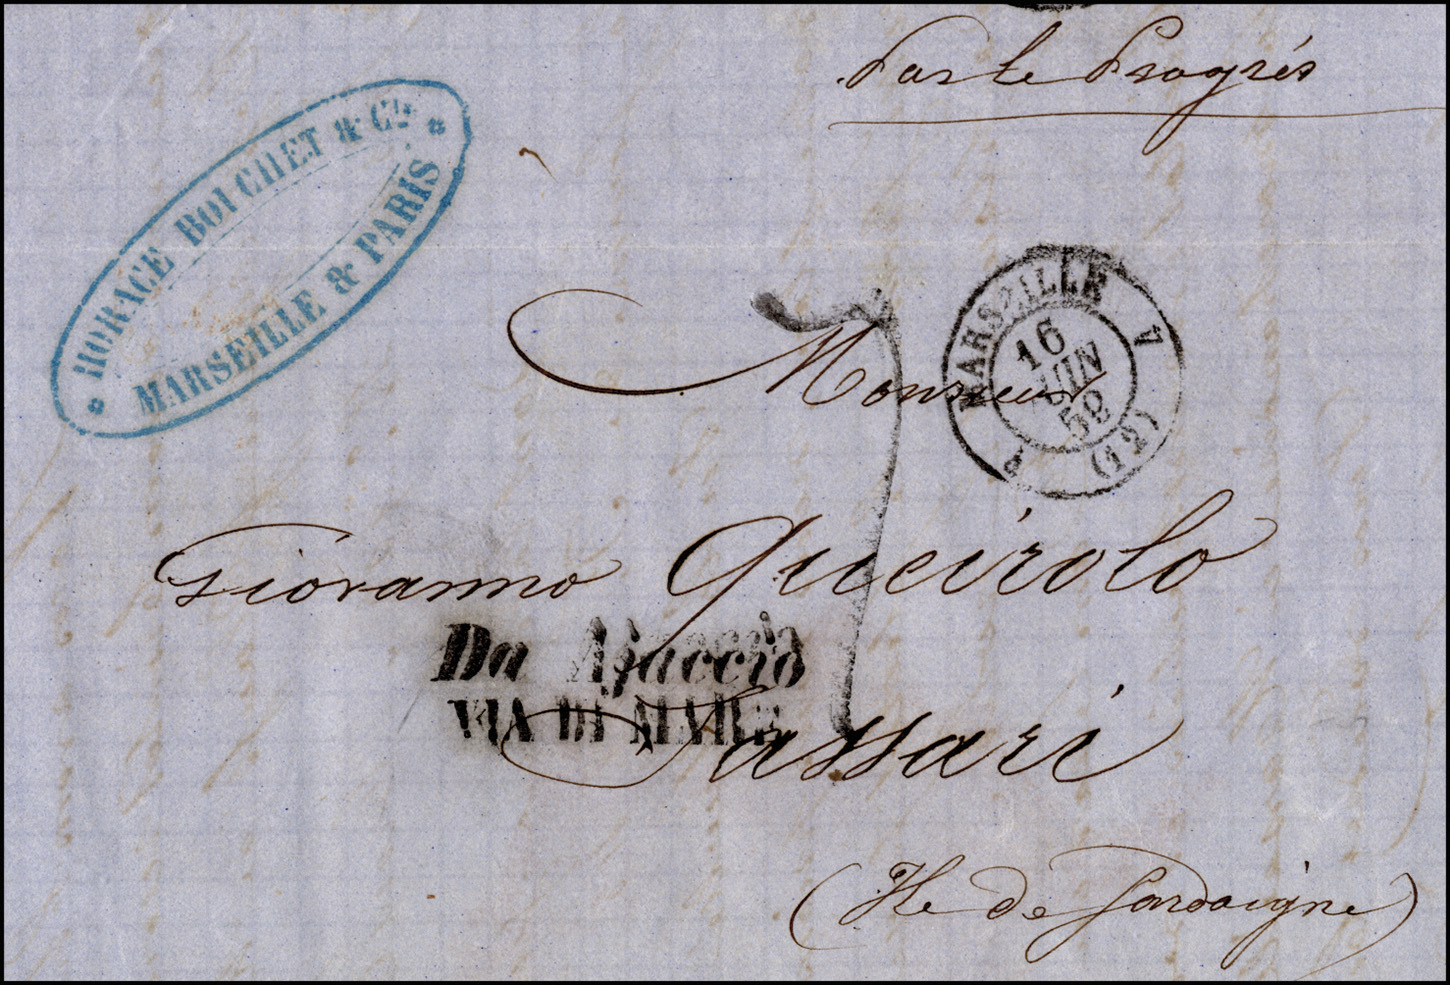 Par le Progrès
HORACE BOUCHET & Cie
MARSEILLE & PARIS
MARSEILLE
16
JUIN
59
(12)
7
Monsieur
Giovanno Queirolo
Da Ajaccio
VIA DI MARE
Sassari
(Ile de Sardaigne)